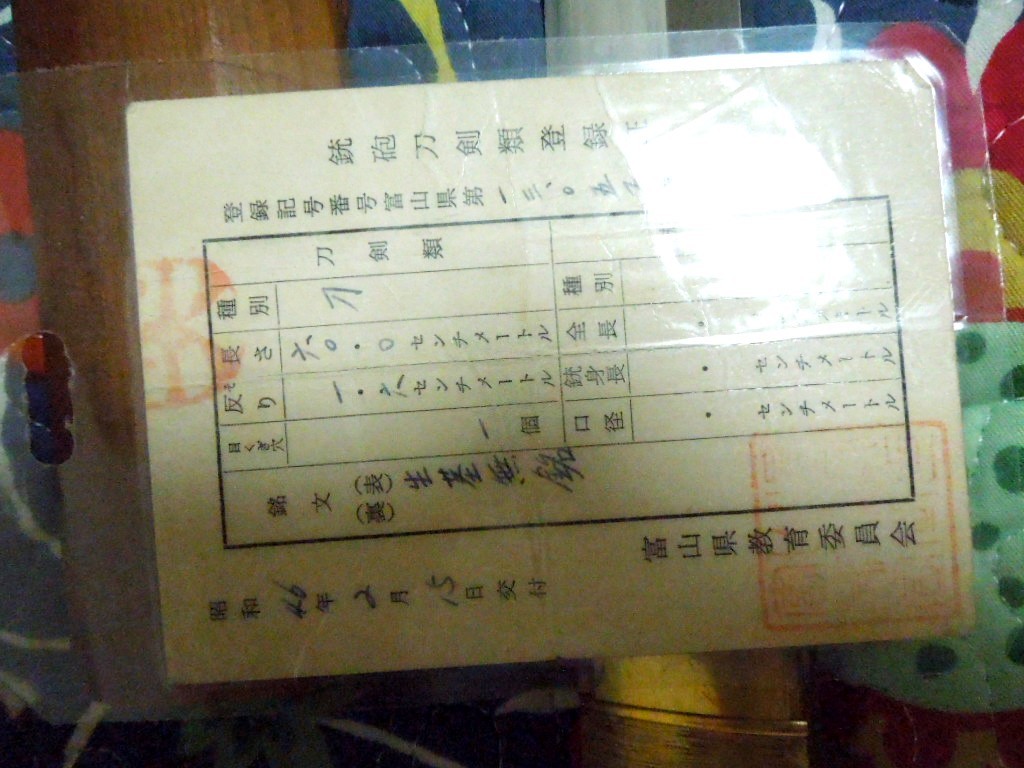 銃砲刀剣類登録
登録記号番号富山県第一三、〇五
刀剣類
種別 刀
長さ 六〇.〇センチメートル
反り そ 一.六センチメートル
目くぎ穴 一個
種別
全長 . センチメートル
銃身長 . センチメートル
口径 . センチメートル
銘文 (表) (裏) 生茎無銘
昭和46年2月15日交付
富山県教育委員会